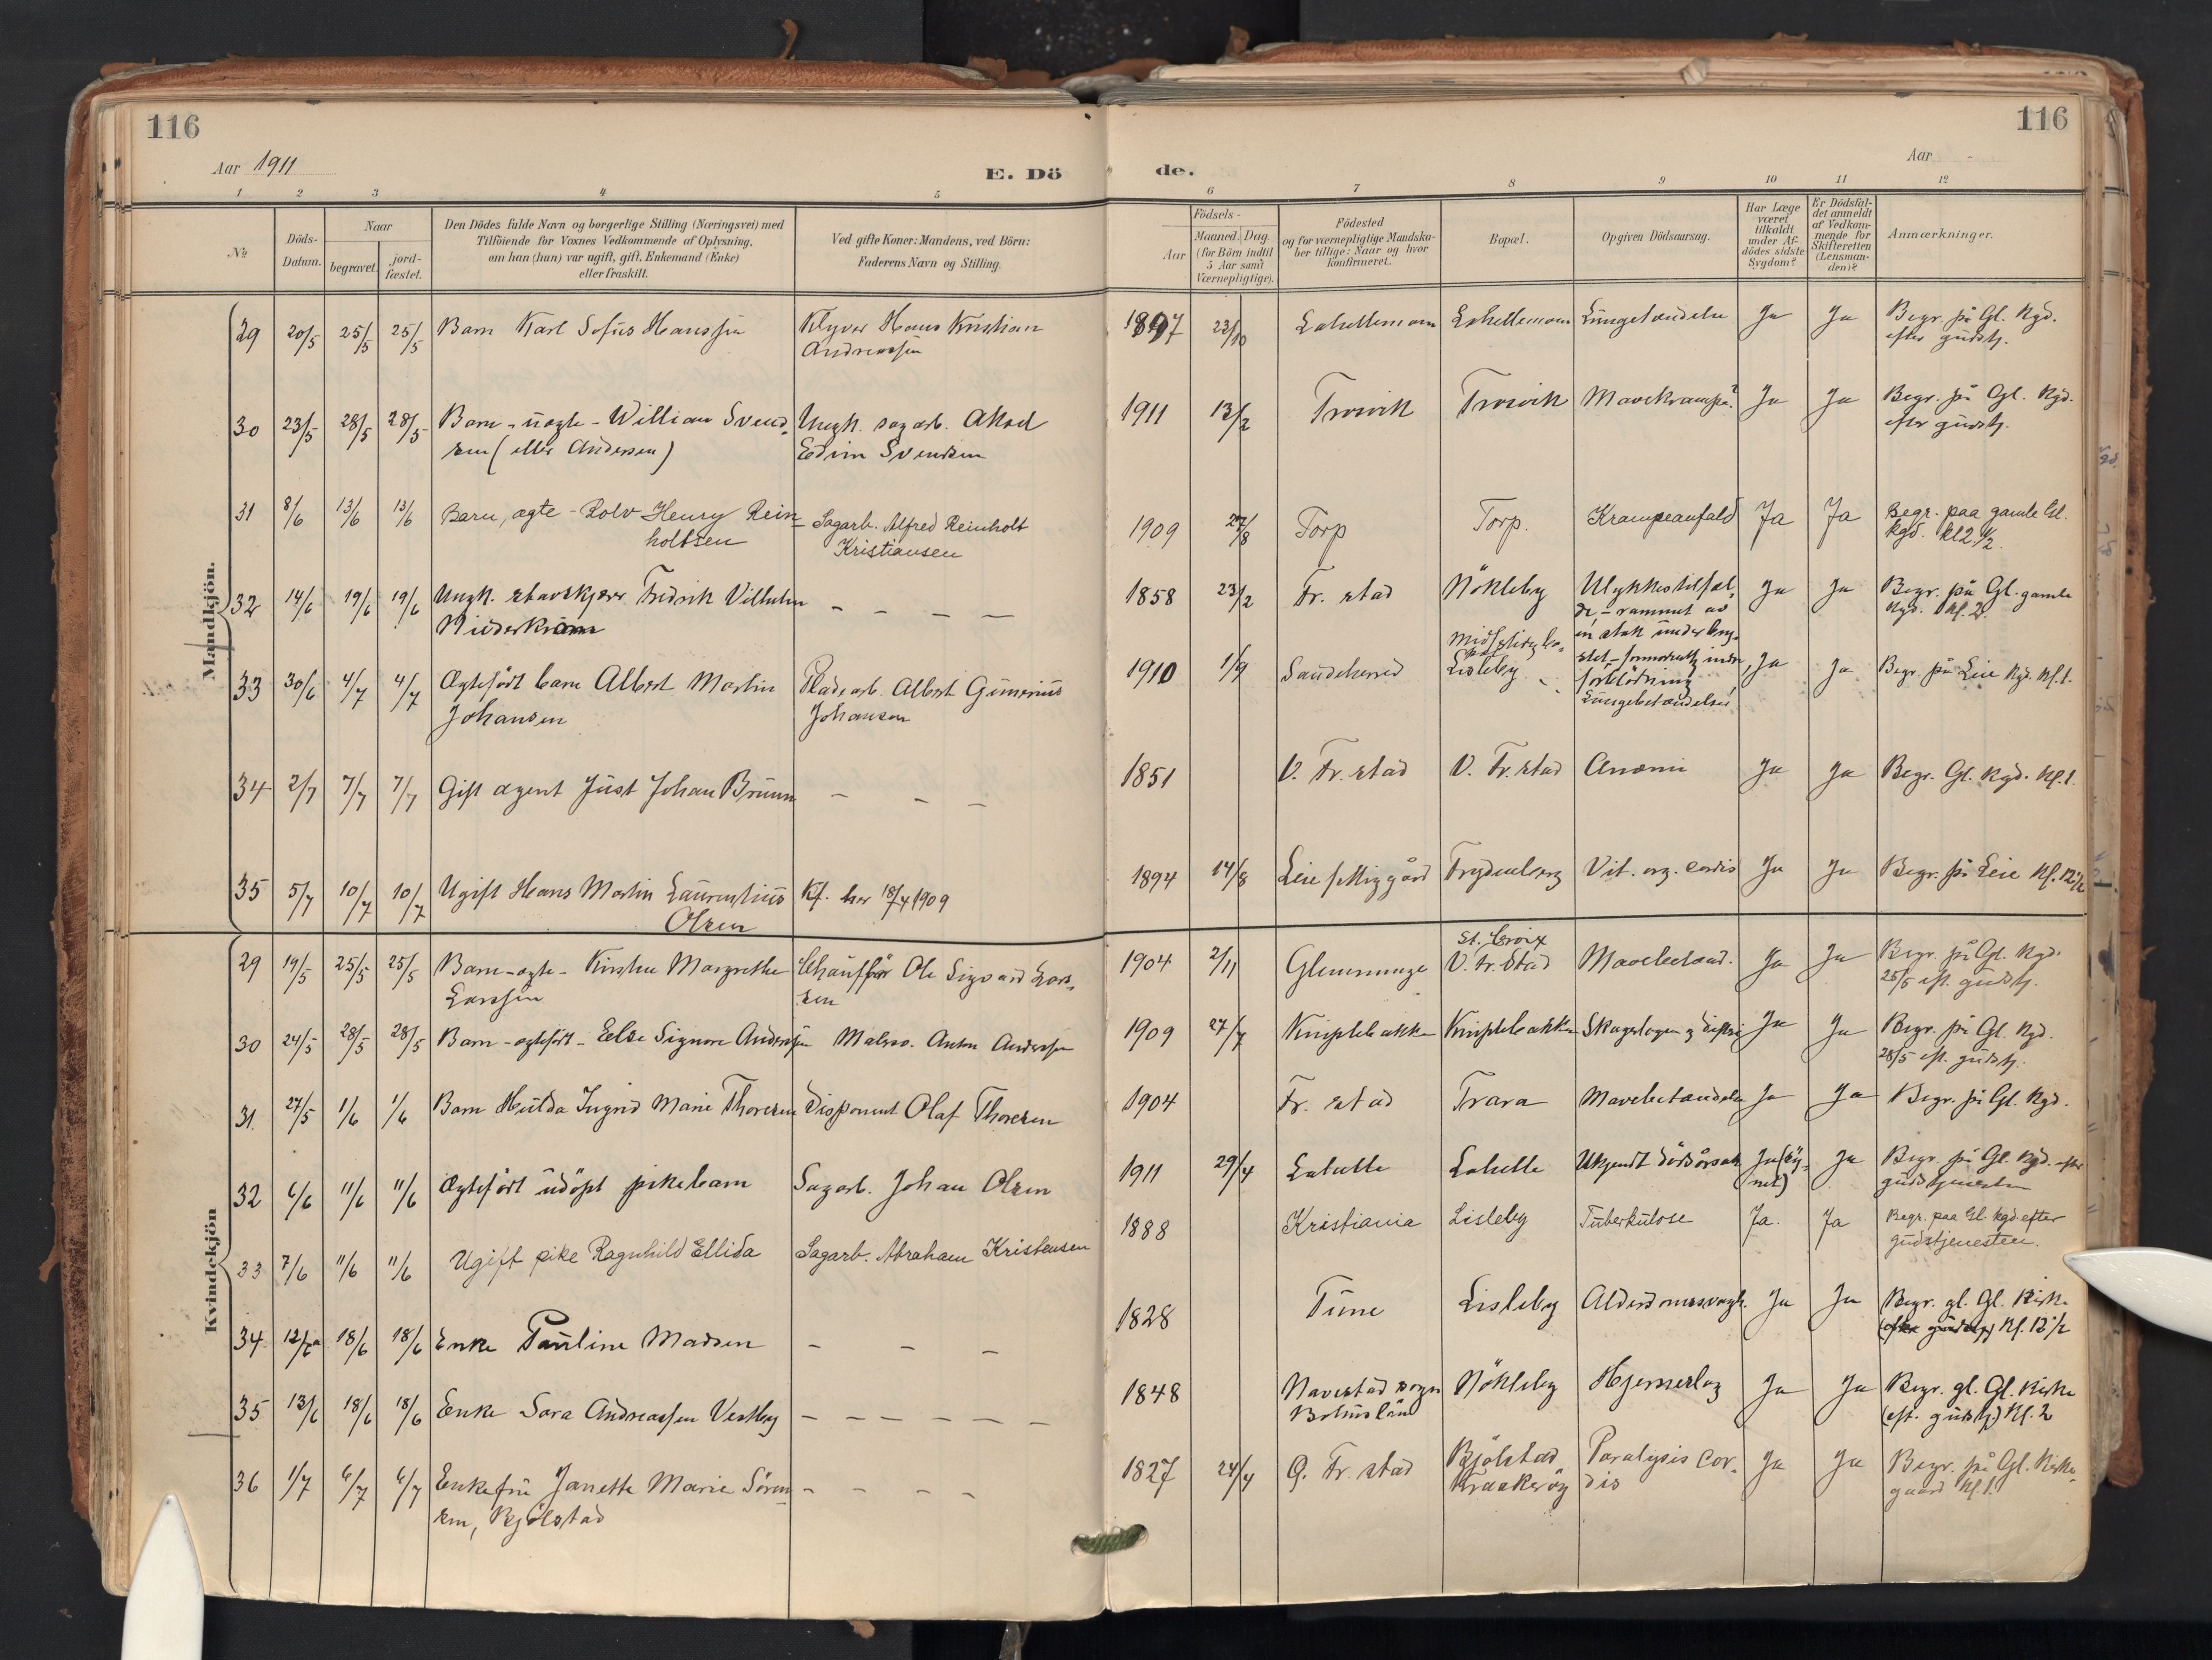 116
116
Aar 1911
E. Dö
de.
Aar -
1 2 3 4 5 6 7 8 9 10 11 12
№
Döds-
Datum.
Naar
begravet.
jord-
fæstet.
Den Dödes fulde Navn og borgerlige Stilling (Næringsvei) med
Tilföiende for Voxnes Vedkommende af Oplysning,
om han (hun) var ugift, gift, Enkemand (Enke)
eller fraskilt.
Ved gifte Koner: Mandens, ved Börn:
Faderens Navn og Stilling.
Födsels-
Aar
Maaned. Dag.
(for Börn indtil
5 Aar samt
Værnepligtige).
Födested
og for værnepligtige Mandska-
ber tillige: Naar og hvor
konfirmeret.
Bopæl.
Opgiven Dödsaarsag.
Har Læge
været
tilkaldt
under Af-
dödes sidste
Sygdom?
Er Dödsfal-
det anmeldt
af Vedkom-
mende for
Skifteretten
(Lensman-
den)?
Anmærkninger.
Mandkjön.
29 20/5 25/5 25/5 Barn Karl Sofus Hanssen
Hans Kristian
Andreassen
23/10 Ja Ja Begr. på Gl. Kgd.
efter gudstj.
30 23/5 28/5 28/5 Barn - uægte - William Svend-
sen (eller Andersen)
Ungk. sagarb.
Edvin Svendsen
1911 13/2 Trosvik Trosvik Mavekrampe? Ja Ja Begr. på Gl. Kgd.
efter gudstj.
31 8/6 13/6 13/6 Barn, ægte - Rolv Henry Rein-
holtsen
Sagarb. Alfred Reinholt
Kristiansen
1909 27/8 Torp Torp. Krampeanfald Ja Ja Begr. paa gamle Gl.
Kgd. kl 2 1/2.
32 14/6 19/6 19/6 Ungk. Fredrik Vilhelm
— — — —
1858 23/2 Fr. stad Nökleby Ulykkestilfæl-
de, - rammet av
en stok under
indre
forblödning
Ja Ja Begr. på Gl. gamle
Kgd. Kl. 2.
33 30/6 4/7 4/7 Ægtefödt barn Albert Martin
Johansen
Pladsarb. Albert Gunerius
Johansen
1910 1/9 Sandeherred
Lisleby
Lungebetændelse
Ja Ja Begr. på Leie Kgd. Kl. 1.
34 2/7 7/7 7/7 Gift agent Just Johan Bruun — — —
1851 V. Fr. stad V. Fr. stad Anæmi Ja Ja Begr. Gl. Kgd. Kl. 1.
35 5/7 10/7 10/7 Ugift Hans Martin Laurentius
Olsen
Kf. her 18/4 1909
1894 14/8 Frydenberg Vit. org. cordis Ja Ja Begr. på Leie Kl. 12 1/2
Kvindekjön
29 19/5 25/5 25/5 Barn - ægte - Kirsten Margrethe
Larssen
Chauffør Ole Sigvard Lars-
sen
1904 2/11 Glemminge
St. Croix
V. Fr. Stad Mavebetænd. Ja Ja Begr. på Gl. Kgd.
25/5 eft. gudstj.
30 24/5 28/5 28/5 Barn - ægtefödt - Else Signora Anderssen Malersv. Anton Anderssen
1909 27/7 Kniplebakken Kniplebakken Ja Ja Begr. på Gl. Kgd.
28/5 eft. gudstj.
31. 27/5 1/6 1/6 Barn Hulda Ingrid Marie Thoresen Disponent Olaf Thoresen
1904 Fr. stad Trara Mavebetændelse Ja Ja Begr. på Gl. Kgd.
32 6/6 11/6 11/6 Ægtefödt udöpt pikebarn Sagarb. Johan Olsen
1911 29/4 Labette Labette Ukjendt dödsårsak Ja Ja Begr. på Gl. Kgd. efter
gudstjenesten
33 7/6 11/6 11/6 Ugift pike Ragnhild Ellida Sagarb. Abraham Kristensen
1888 Kristiania Lisleby Tuberkulose Ja. Ja Begr. paa Gl. kgd. efter
gudstjenesten.
34 12/6 18/6 18/6 Enke Pauline Madsen — — —
1828 Tune Lisleby Alderdomssvagh. Ja Ja Begr. gl. Gl. Kirke
(efter gudstj) Kl. 12 1/2
35 13/6 18/6 18/6 Enke Sara Andreassen Vestby — — — — — —
1848 Navestad sogn
Bohuslän
Nökleby Hjerneslag Ja Ja Begr. gl. Gl. Kirke
(eft. gudstj.) Kl. 2
36 1/7 6/7 6/7 Enkefru Janette Marie Sören-
sen, Bjölstad
— — — —
1827 24/4 G. Fr. stad Bjölstad
Kraakeröy
Paralysis cor-
dis
Ja Ja Begr. på Gl. Kirke-
gaard Kl. 1.